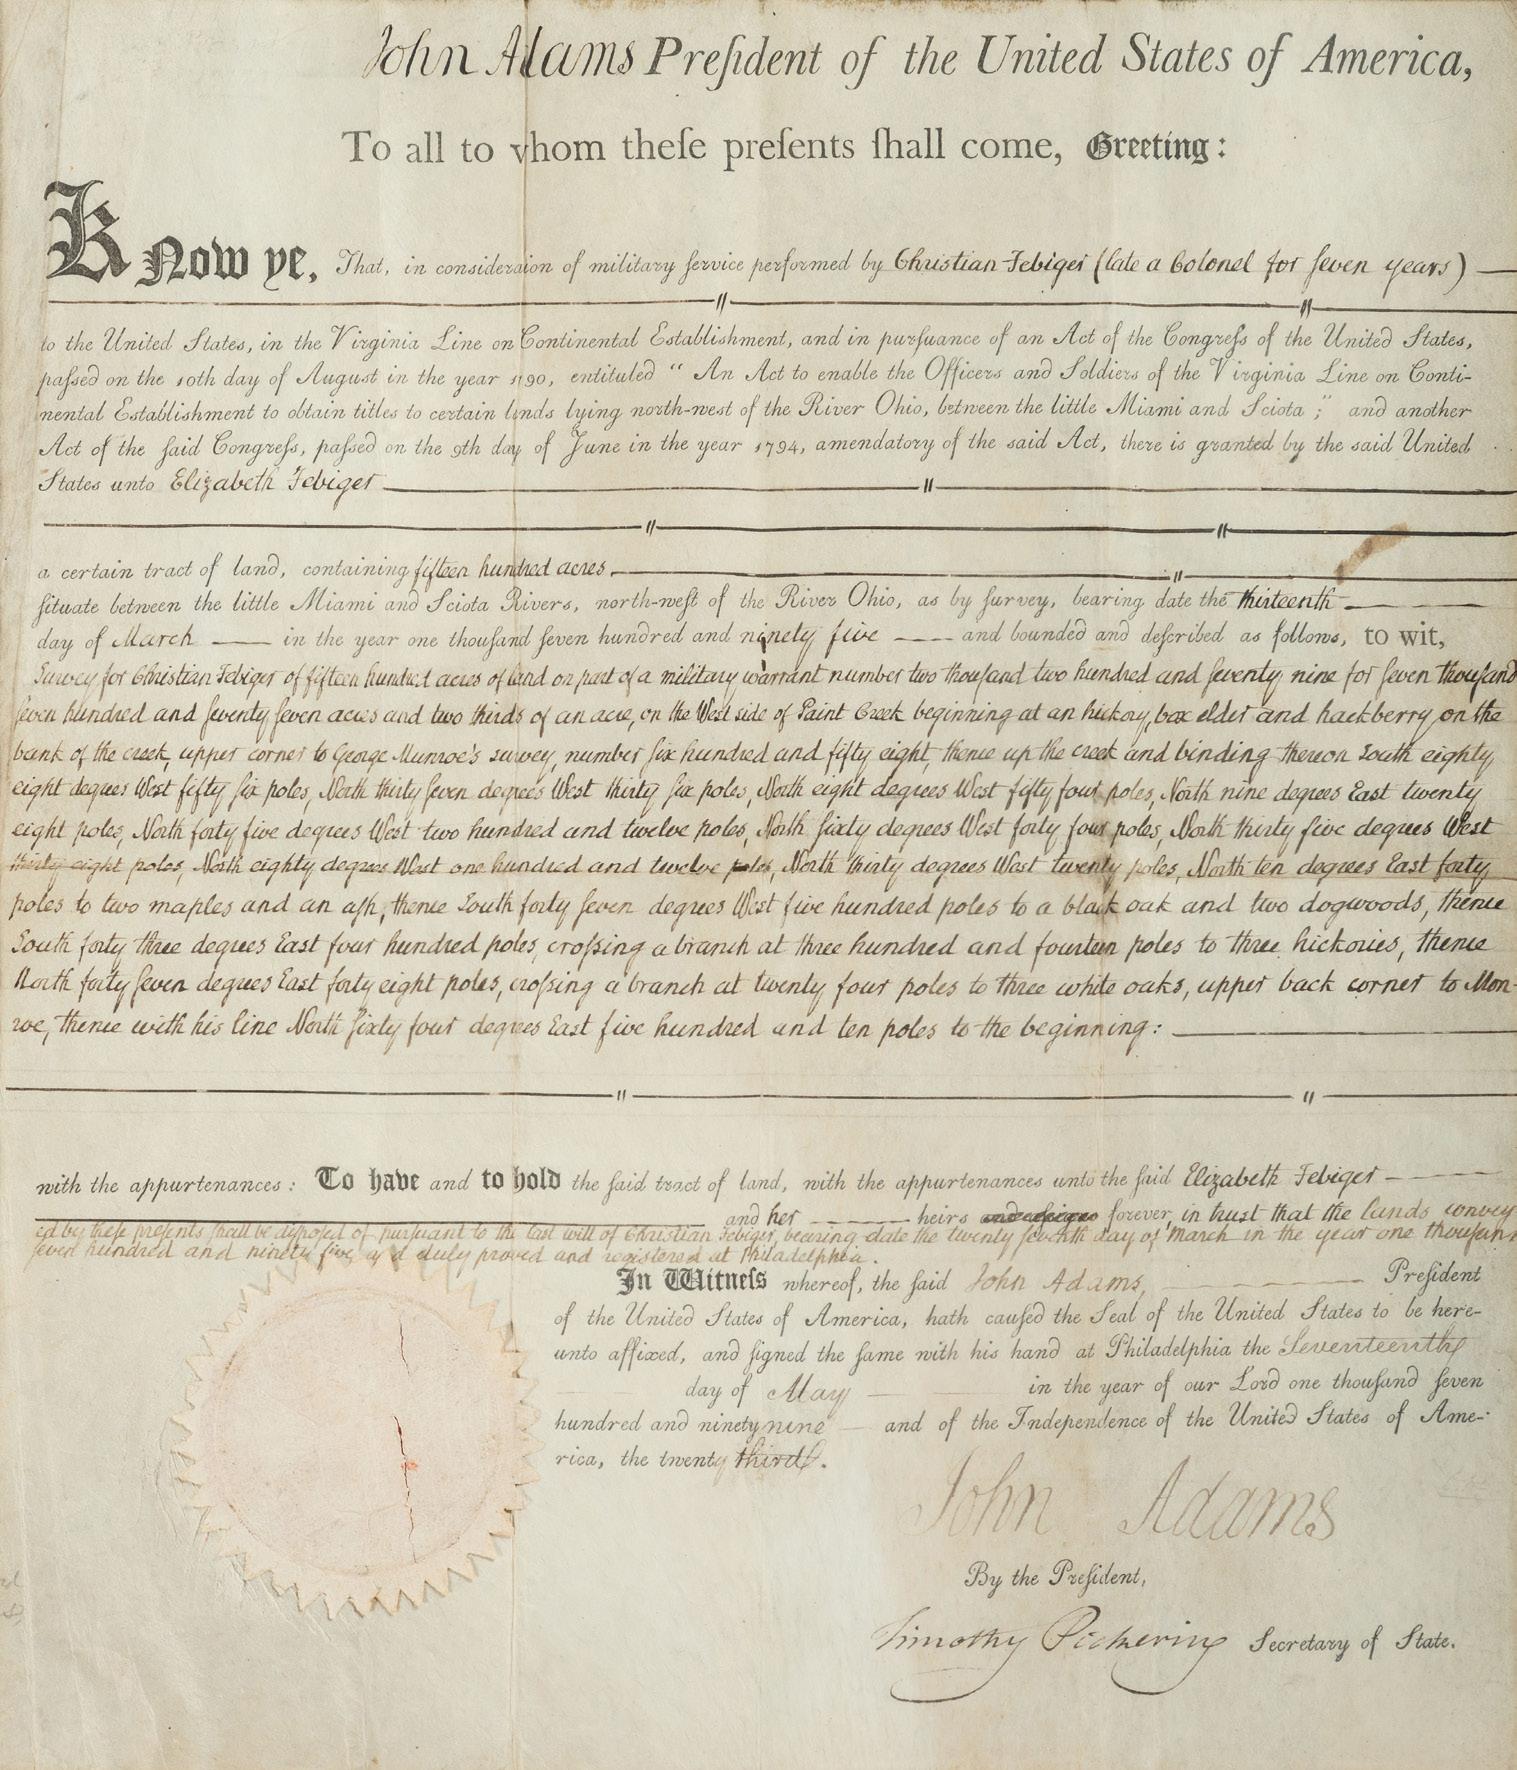 John Adams Preſident of the United States of America,
To all to whom theſe preſents ſhall come, Greeting:
Know ye, That, in consideraion of military ſervice performed by Christian Febiger (late a Colonel for ſeven years)
to the United States, in the Virginia Line on Continental Establishment, and in purſuance of an Act of the Congreſs of the United States,
paſſed on the 10th day of August in the year 1790, entituled “ An Act to enable the Officers and Soldiers of the Virginia Line on Conti-
nental Establishment to obtain titles to certain lands lying north-west of the River Ohio, between the little Miami and Sciota ;” and another
Act of the ſaid Congreſs, paſſed on the 9th day of June in the year 1794, amendatory of the said Act, there is granted by the said United
States unto Elizabeth Febiger
a certain tract of land, containing fifteen hundred acres
ſituate between the little Miami and Sciota Rivers, north-west of the River Ohio, as by ſurvey, bearing date the thirteenth
day of March in the year one thouſand ſeven hundred and ninety five and bounded and deſcribed as follows, to wit,
Survey for Christian Febiger of fifteen hundred acres of land on part of a military warrant number two thouſand two hundred and ſeventy nine for ſeven thouſand
ſeven hundred and ſeventy ſeven acres and two thirds of an acre, on the West side of Paint Creek beginning at an hickory, box elder and hackberry on the
bank of the creek, upper corner to George Munroe's survey, number ſix hundred and fifty eight, thence up the creek and binding thereon South eighty
eight degrees West fifty ſix poles, North thirty ſeven degrees West thirty ſix poles, North eight degrees West fifty four poles, North nine degrees East twenty
eight poles, North forty five degrees West two hundred and twelve poles, North ſixty degrees West forty four poles, North thirty five degrees West
thirty eight poles, North eighty degrees West one hundred and twelve poles, North thirty degrees West twenty poles, North ten degrees East forty
poles to two maples and an aſh, thence South forty ſeven degrees West five hundred poles to a black oak and two dogwoods, thence
South forty three degrees East four hundred poles, croſsing a branch at three hundred and fourteen poles to three hickories, thence
North forty ſeven degrees East forty eight poles, croſsing a branch at twenty four poles to three white oaks, upper back corner to Mon-
roe, thence with his line North ſixty four degrees East five hundred and ten poles to the beginning:
with the appurtenances: To have and to hold the ſaid tract of land, with the appurtenances unto the ſaid Elizabeth Febiger
and her heirs and assigns forever, in trust that the lands convey
ed by these preſents ſhall be diſpoſed of purſuant to the last will of Christian Febiger, bearing date the twenty ſeventh day of March in the year one thouſand
ſeven hundred and ninety five, and duly proved and registered at Philadelphia.
In Witneſs whereof, the ſaid John Adams, Preſident
of the United States of America, hath cauſed the Seal of the United States to be here-
unto affixed, and ſigned the ſame with his hand at Philadelphia the Seventeenth
day of May in the year of our Lord one thouſand ſeven
hundred and ninety nine and of the Independence of the United States of Ame-
rica, the twenty third.
John Adams
By the Preſident,
Timothy Pickering Secretary of State.